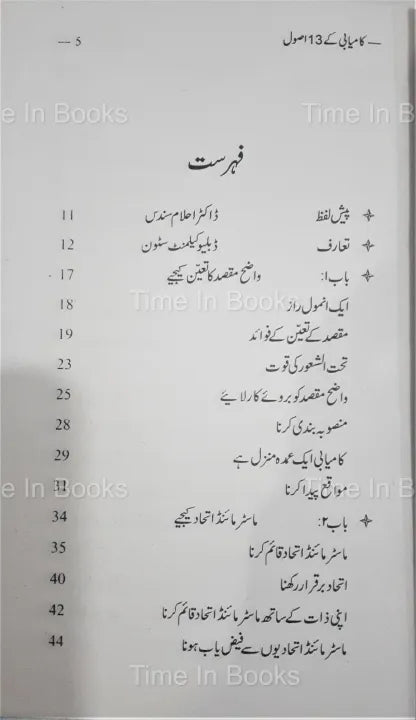 — کامیابی کے 13 اصول 5 —
Time In Books Time In Books
فہرست
پیش لفظ ڈاکٹر احلام سندس 11
تعارف ڈبلیو کلیمنٹ سٹون 12
باب ۱: واضح مقصد کا تعیّن کیجیے 17
ایک انمول راز 18
Time In Books
مقصد کے تعیّن کے فوائد 19
تحت الشعور کی قوت 23
واضح مقصد کو بروئے کار لائیے 25
منصوبہ بندی کرنا 28
کامیابی ایک عمدہ منزل ہے 29
مواقع پیدا کرنا 31
e In Books Time In B
باب ۲: ماسٹر مائنڈ اتحاد کیجیے 34
ماسٹر مائنڈ اتحاد قائم کرنا 35
اتحاد برقرار رکھنا 40
اپنی ذات کے ساتھ ماسٹر مائنڈ اتحاد قائم کرنا 42
ماسٹر مائنڈ اتحادیوں سے فیض یاب ہونا 44
Time In Books